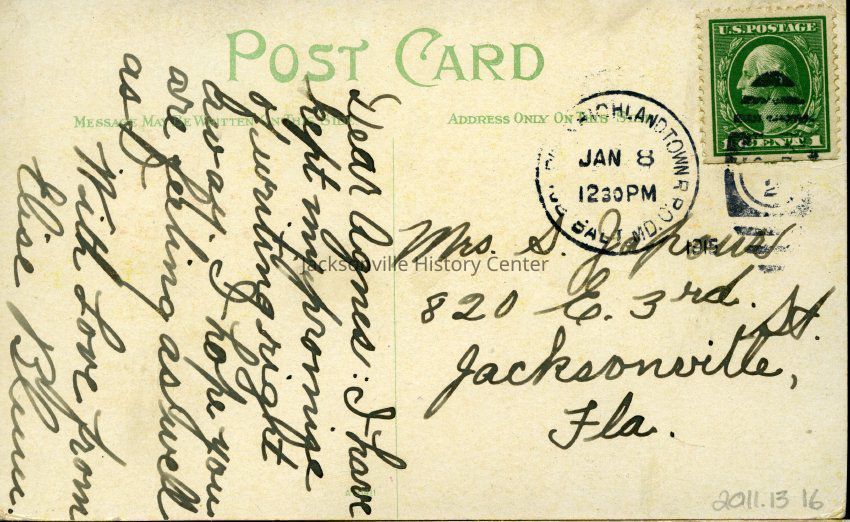 POST CARD
MESSAGE MAY BE WRITTEN ON THIS SIDE
ADDRESS ONLY ON THIS SIDE
U.S. POSTAGE
1 CENT 1
HIGHLANDTOWN R.P.O.
BALT. MD.
JAN 8
12 30 PM
1915
Dear Agnes: I have
kept my promise
of writing right
away. I hope you
are feeling as well
as I.
With Love from
Elise Blum.
Mrs. S.
820 E. 3rd. St.
Jacksonville,
Fla.
Jacksonville History Center
2011.13 16